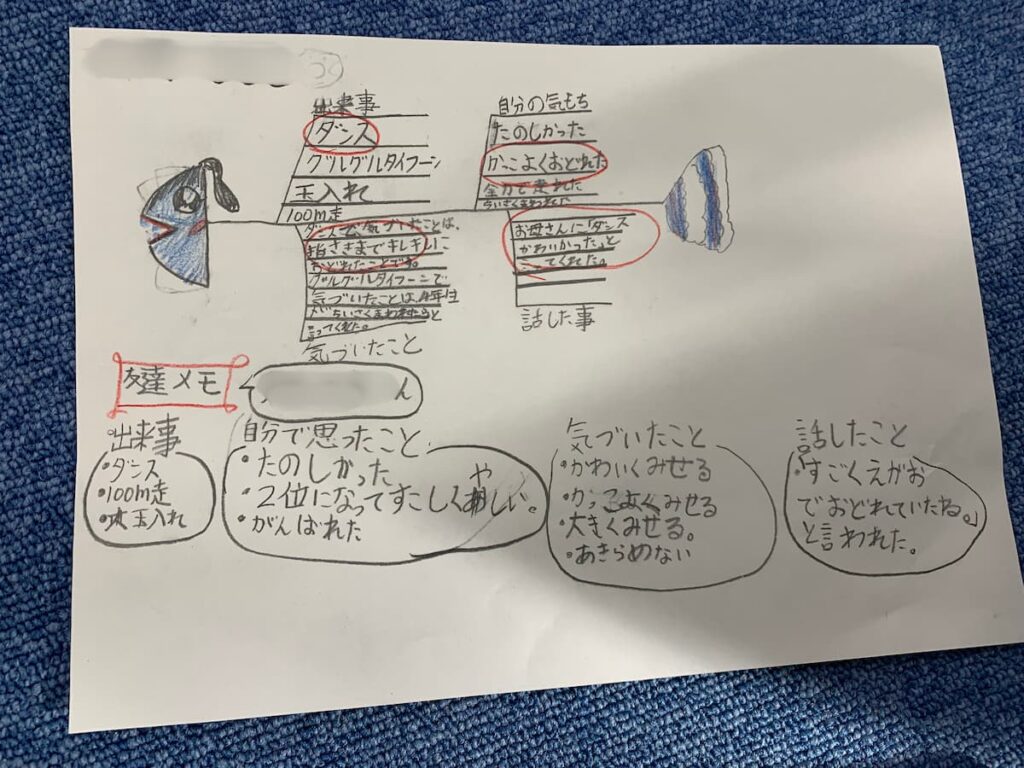 出来事
ダンス
グルグルタイフーン
玉入れ
100m走
自分の気もち
たのしかった
かっこよくおどれた
全力で走れた
ちいさくまわれた
ダンスで気づいたことは、
指さきまでキレキレに
おどれたことです。
グルグルタイフーンで
気づいたことは、4年生
がちいさくまわれたねと
言ってくれた。
気づいたこと
お母さんに「ダンス
かわいかった」と
いってくれた。
話した事
友達メモ
ん
出来事
・ダンス
・100m走
・玉入れ
自分で思ったこと
・たのしかった
・2位になってすこしくやしい。
・がんばれた
気づいたこと
・かわいくみせる
・かっこよくみせる
・大きくみせる。
・あきらめない
話したこと
・すごくえがお
でおどれていたね。」
と言われた。